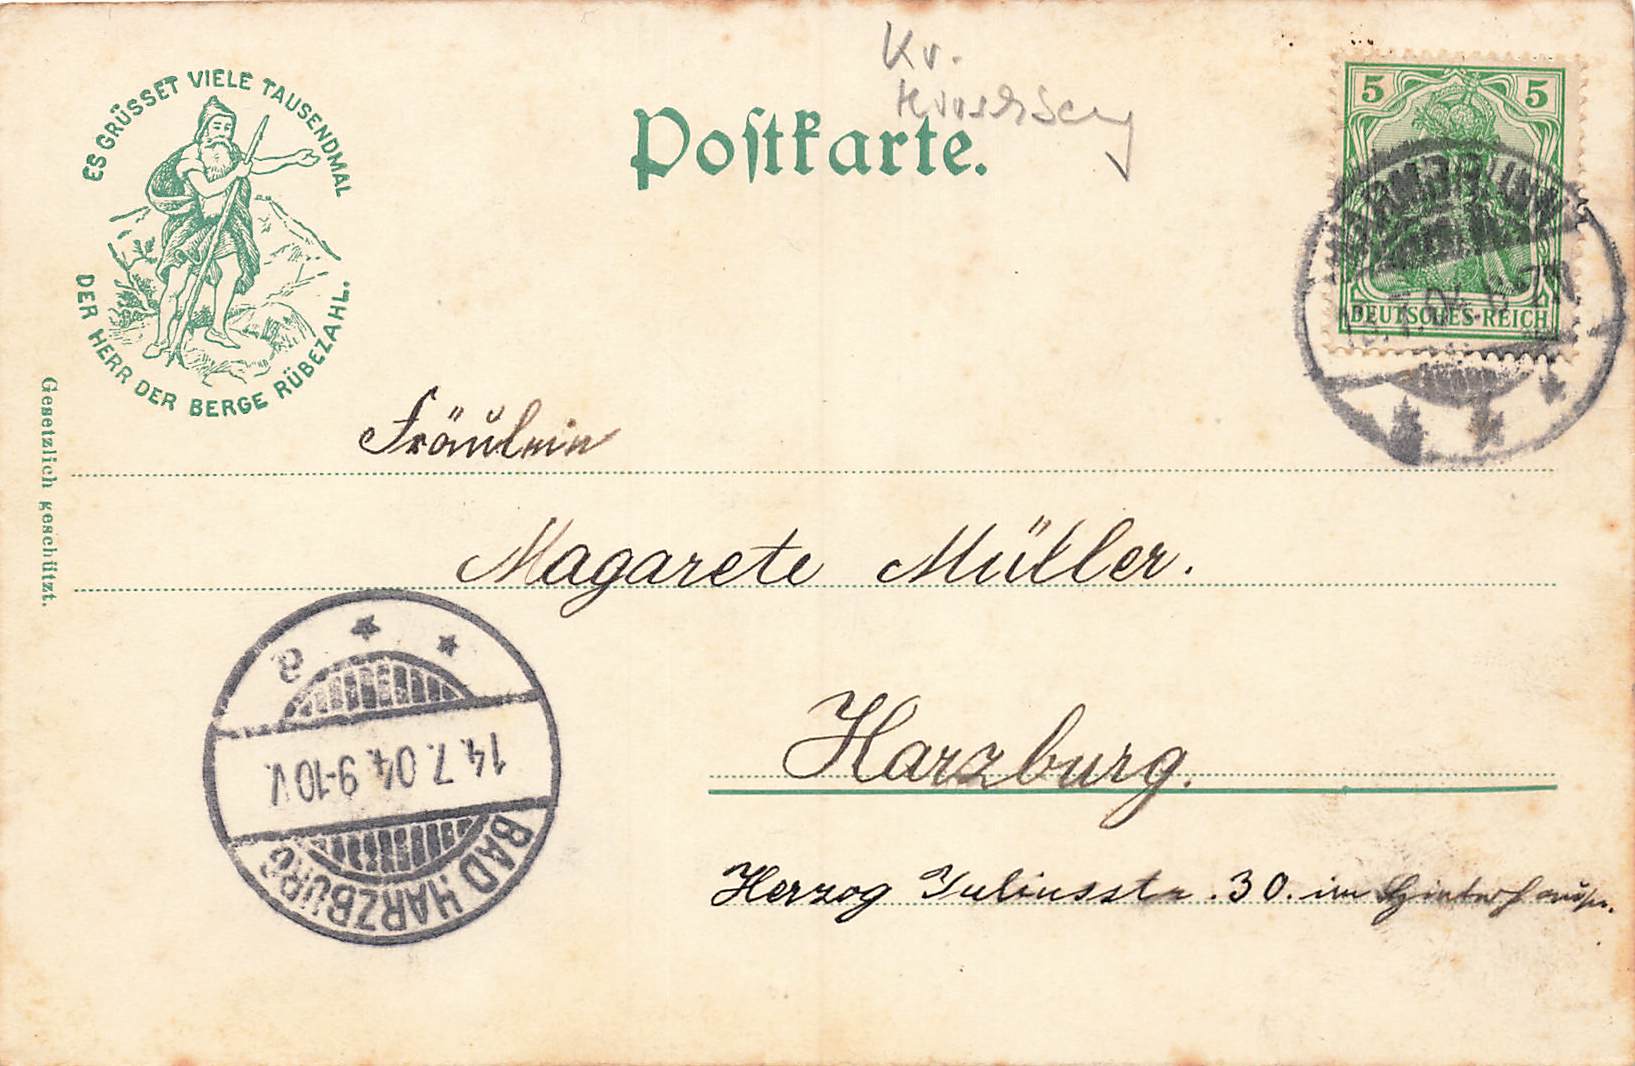 ES GRÜSSET VIELE TAUSENDMAL
DER HERR DER BERGE RÜBEZAHL.
Gesetzlich geschützt.
Kr.
Postkarte.
5 5
DEUTSCHES REICH
Fräulein
Magarete Müller.
Harzburg.
Herzog Juliusstr. 30. im Hinterhause.
BAD HARZBURG
14.7.04. 9-10 V.